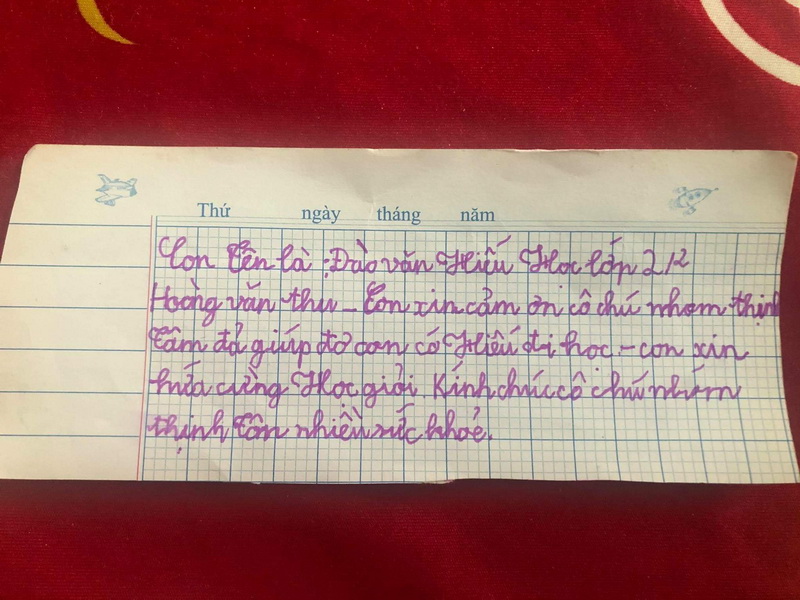 Thứ ngày tháng năm
Con tên là : Đào văn Hiếu Học lớp 2/2
Hoàng văn thu - Con xin cảm ơn cô chú nhom thịnh
tâm đả giúp đở con có Hiếu đi học - con xin
hứa cừng Học giỏi. Kính chúc cô chú nhóm
thịnh tâm nhiều sức khoẻ.